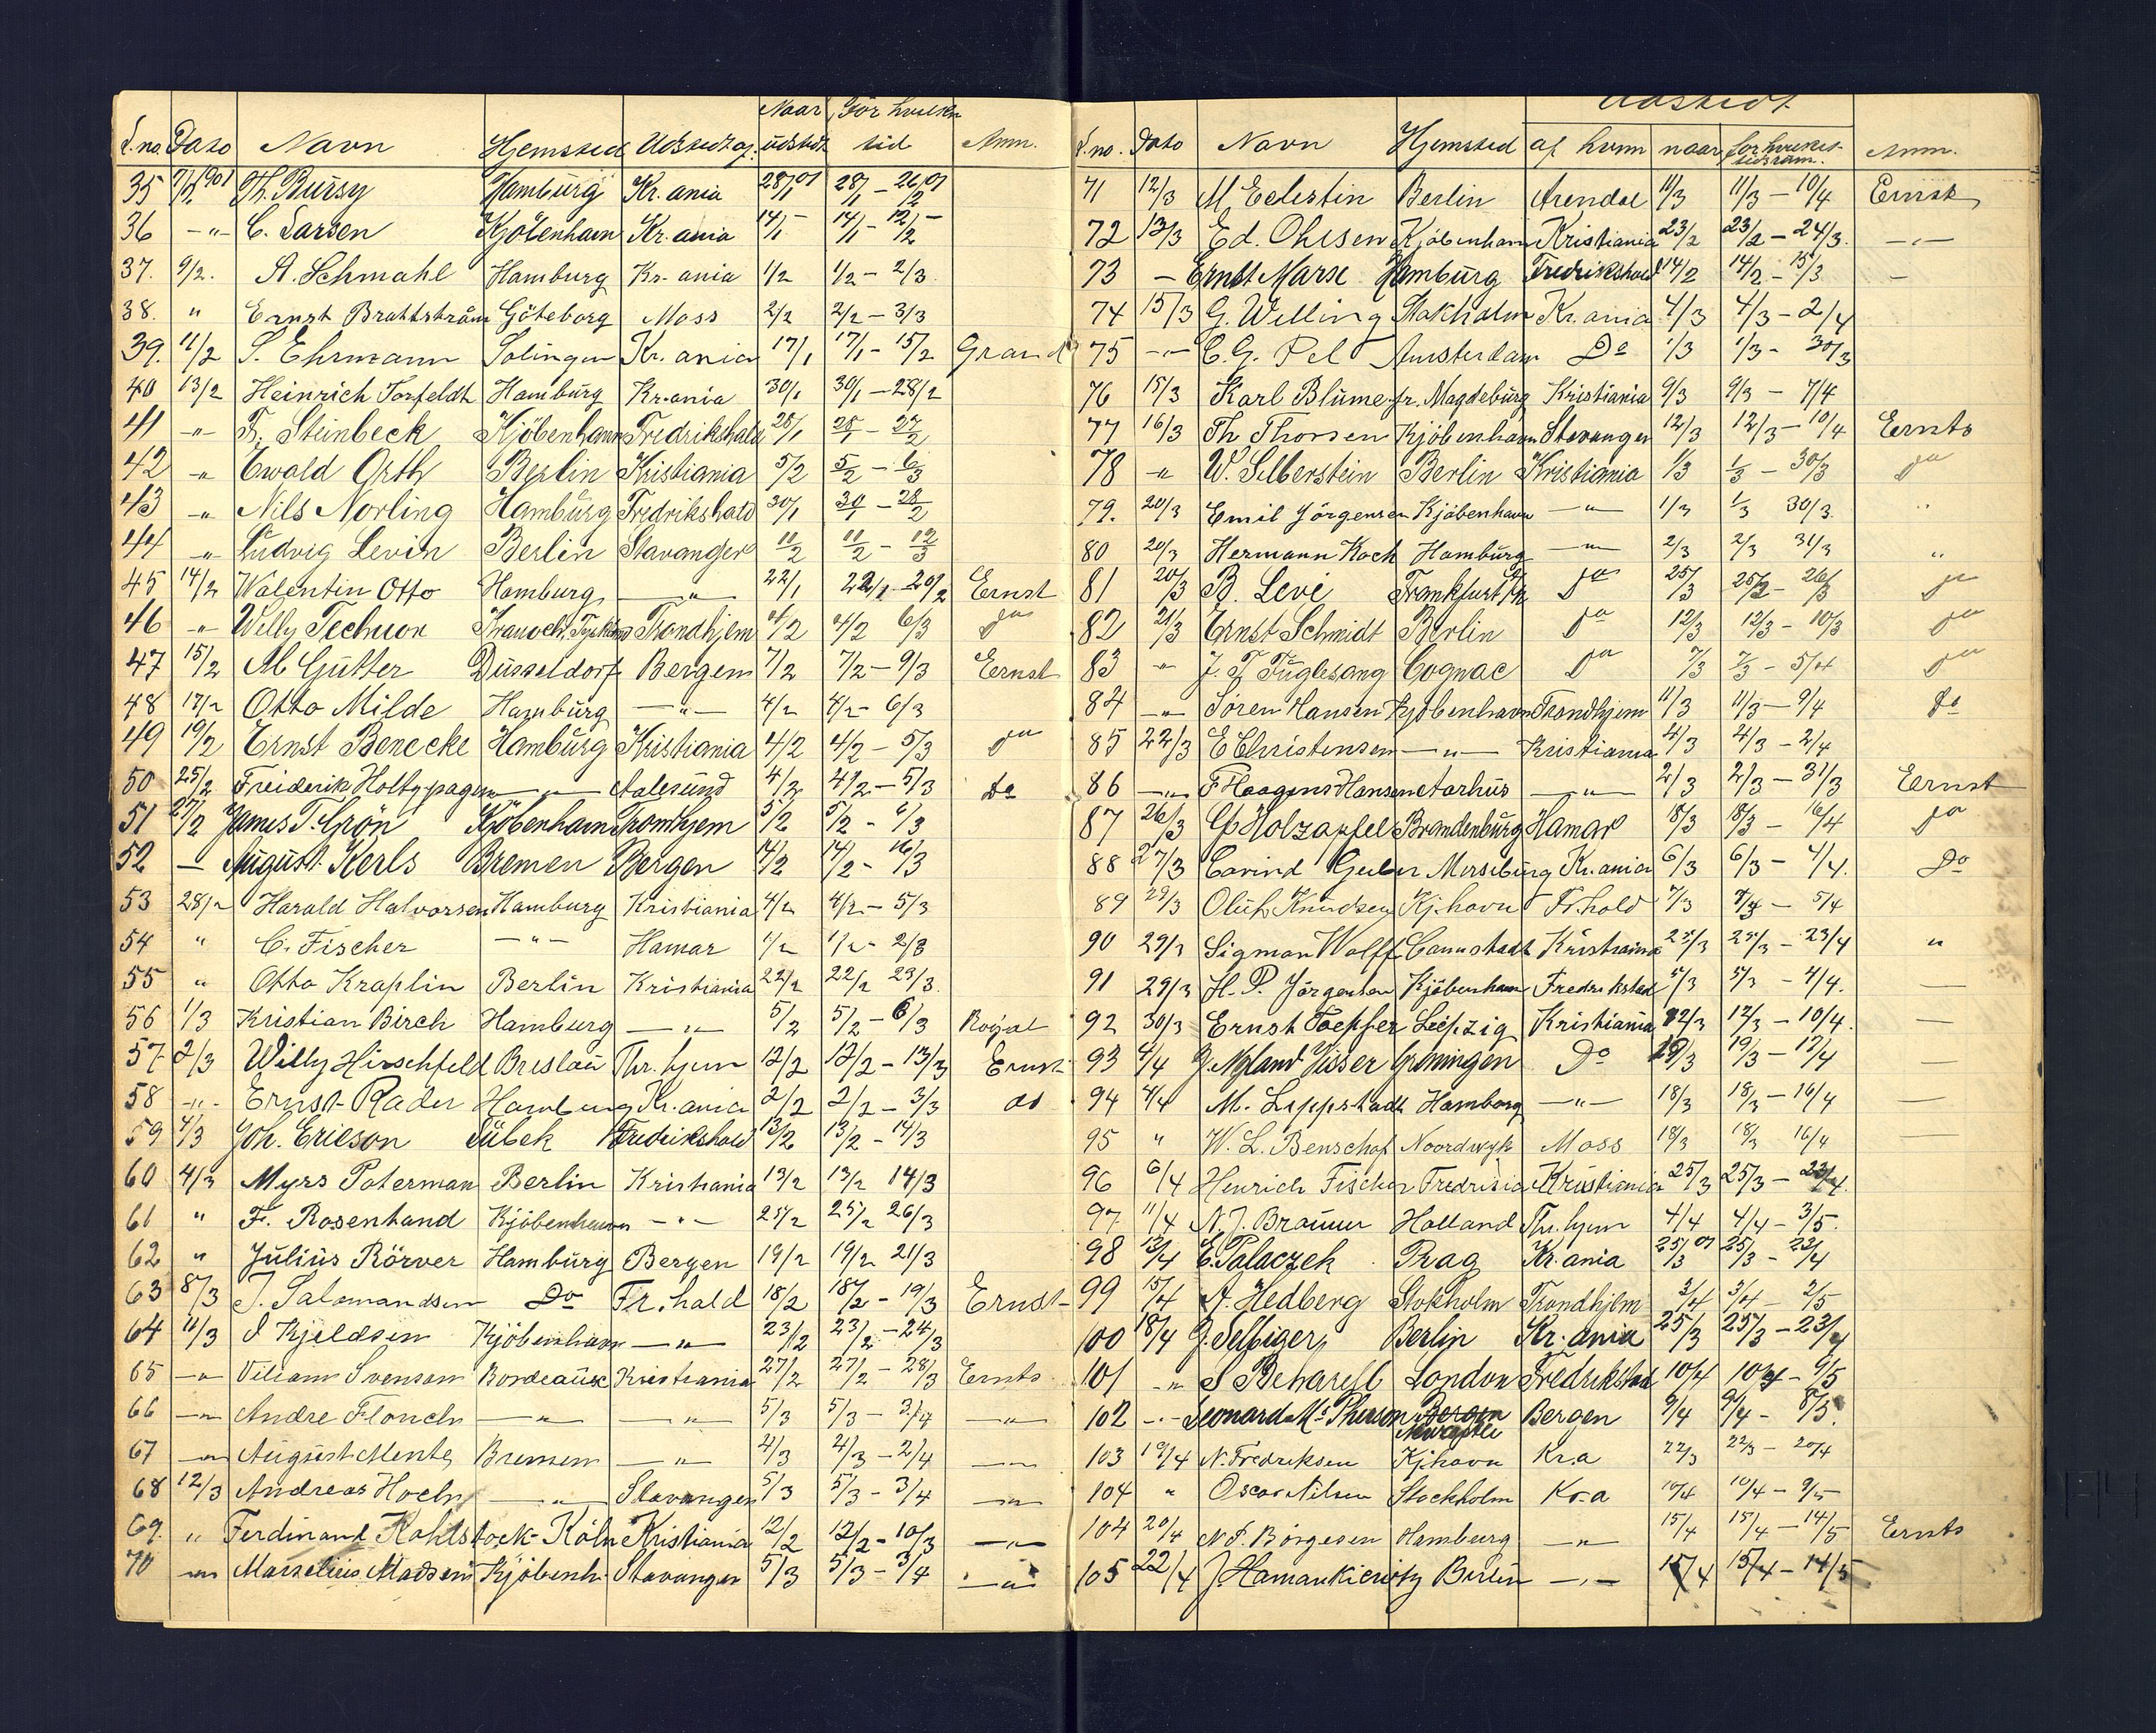 Naar För hvilken
L.no. Dato Navn Hjemsted Udstedt af: udstedt tid Anm.
35 7/2 901 Th. Bursy Hamburg Kr.ania 28/1 01 28/1 - 26/2 01
36 -"- C. Larsen Kjöbenhavn Kr.ania 14/1 - 14/1 - 12/2 -
37. 9/2. A. Schmahl Hamburg Kr.ania 1/2 1/2 - 2/3.
38. " Ernst Brattström Göteborg Moss 2/2 2/2 - 3/3
39. 11/2 S. Ehrmann Solingen Kr.ania 17/1 17/1 - 15/2 Grand
40 13/2 Heinrich Torfeldt Hamburg Kr.ania 30/1 30/1 - 28/2
41 -"- F. Steinbeck Kjöbenhavn Fredrikshald 28/1 28/1 - 27/2
42 -"- Ewald Orth Berlin Kristiania 5/2 5/2 - 6/3
43 -"- Nils Norling Hamburg Fredrikshald 30/1 30/1 - 28/2
44 -"- Ludvig Levin Berlin Stavanger 11/2 11/2 - 12/3
45 14/2 Walentin Otto Hamburg -"- 22/1 22/1 - 20/2 Ernst
46 -"- Willy Techuor Trondhjem 4/2 4/2 6/3 Do
47 15/2 M Gütter Düsseldorf Bergen 7/2 7/2 - 9/3 Ernst
48 17/2 Otto Milde Hamburg -"- 4/2 4/2 - 6/3
49 19/2 Ernst Benecke Hamburg Kristiania 4/2 4/2 - 5/3 Do
50 25/2 Freiderik -"- Aalesund 4/2 4/2 - 5/3 Do
51 27/2 James T. Grön Kjöbenhavn Tromhjem 5/2 5/2 - 6/3
52 - August Kerls Bremen Bergen 14/2 14/2 - 16/3
53 28/2 Harald Halvorsen Hamburg Kristiania 4/2 4/2 - 5/3
54 " C. Fischer -"- Hamar 1/2 1/2 - 2/3
55 " Otto Kraplin Berlin Kristiania 22/2 22/2 23/3.
56 1/3 Kristian Birch Hamburg -"- 5/2 5/2 - 6/3 Royal
57. 2/3 Willy Hirschfeld Breslau Thr.hjem 12/2 12/2 - 13/3 Ernst
58 -"- Ernst Rader Hamburg Kr.ania 2/2 2/2 - 3/3 do
59 4/3 Joh. Ericson Lübek Fredrikshald 13/2 13/2 - 14/3
60 4/3 Myrs Poterman Berlin Kristiania 13/2 13/2 14/3
61 " F. Rosentand Kjöbenhavn -"- 25/2 25/2 26/3
62 " Julius Rörver Hamburg Bergen 19/2 19/2 21/3
63 8/3 J. Salamandsen Do Fr.hald 18/2 18/2 - 19/3 Ernst
64 11/3 J Kjeldsen Kjöbenhavn -"- 23/2 23/2 - 24/3
65 -"- Viliam Svenson Bordeaux Kristiania 27/2 27/2 - 28/3 Ernts
66 -"- Andre Flonch -"- -"- 5/3 5/3 - 3/4 -"-
67 -"- August Mente Bremen -"- 4/3 4/3 - 2/4 -"-
68 12/3 Andreas Hoch -"- Stavanger 5/3 5/3 - 3/4 -"-
69. " Ferdinand Kohlstock - Köln Kristiania 12/2 12/2 - 10/3 -"-
70 -"- Marselius Madsen Kjöbenh. Stavanger 5/3 5/3 - 3/4 -"-
Udstedt
L.no. Dato Navn Hjemsted af hvem naar for hvilket tidsrum. Anm.
71 12/3 M Eclestin Berlin Arendal 11/3 11/3 - 10/4 Ernst
72 13/3 Ed. Ohlsen Kjöbenhavn Kristiania 23/2 23/2 - 24/3. -"-
73 - Ernst Marse Hamburg Fredrikshald 14/2 14/2 - 15/3 -
74 15/3 G. Welling Stokholm Kr.ania 4/3 4/3 - 2/4
75 -"- C. G. Pel Amsterdam Do 1/3 1/3 - 30/3
76 15/3 Karl Blume jr. Magdeburg Kristiania 9/3 9/3 - 7/4
77 16/3 Th Thorsen Kjöbenhavn Stavanger 12/3 12/3 - 10/4 Ernts
78 -"- W. Silberstein Berlin Kristiania 1/3 1/3 - 30/3 Do
79. 20/3 Emil Jörgensen Kjöbenhavn -"- 1/3 1/3 30/3. "
80 20/3 Hermann Koch Hamburg -"- 2/3 2/3 31/3 "
81 20/3 B. Levi Frankfurt Do 25/3 25/2 - 26/3 Do
82 21/3 Ernst Schmidt Berlin Do 12/3 12/3 - 10/3 Do
83 -"- J. F. Fuglesang Cognac Do 7/3 7/3 - 5/4 Do
84 -"- Sören Hansen Kjöbenhavn Trondhjem 11/3 11/3 - 9/4 Do
85 22/3 E Christensen -"- Kristiania 4/3 4/3 - 2/4
86 -"- F Haagens Hansen Aarhus -"- 2/3 2/3 - 31/3 Ernst
87 26/3 G Holzapfel Brandenburg Hamar 18/3 18/3 - 16/4 Do
88 27/3 Merseburg Kr.ania 6/3 6/3 - 4/4. Do
89 29/3 Oluf Knudsen Kj.havn Fr.hald 7/3 7/3 - 5/4
90 29/3 Sigman Wolff Cannstadt Kristiania 25/3 25/3 - 23/4 "
91 29/3 H. P. Jörgensen Kjöbenhavn Fredrikstad 5/3 5/3 - 4/4. -
92 30/3 Ernst Toepfer Leipzig Kristiania 12/3 12/3 - 10/4. -
93 4/4 J. Nyland Visser Groningen Do 19/3 19/3 - 17/4 -
94 4/4 M. Lippstadt Hamborg -"- 18/3 18/3 - 16/4 -
95 " W. L. Benschof Noordwyk Moss 18/3 18/3 16/4 -
96 6/4 Henrich Fischer Fredrisia Kristiania 25/3 25/3 - 23/4.
97 11/4 N. J. Brouwer Holland Thr.hjem 4/4 4/4 - 3/5.
98 13/4 E. Palaczek Prag Kr.ania 25/3 01 25/3 - 23/4
99 15/4 A. Hedberg Stokholm Trondhjem 3/4 3/4 - 2/5
100 18/4 J. Selbiger Berlin Kr.ania 25/3 25/3 - 23/4
101 -"- S Beharell London Fredrikstad 10/4 10/4 - 9/5
102 -"- Leonard Mc Pherson Bergen Bergen 9/4 9/4 - 8/5.
Newcastle
103 19/4 N. Fredriksen Kj.havn Kr.a 22/3 22/3 - 20/4
104 " Oscar Nilsen Stockholm Kr.a 10/4 10/4 - 9/5
104 20/4 N. F. Börgesen Hamburg -"- 15/4 15/4 - 14/5 Ernts
105 22/4 J. Hamankiewitz Berlin -"- 15/4 15/4 - 14/5